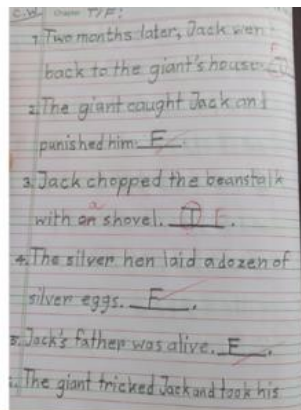 C.W. Choose T/F:
1. Two months later, Jack went
back to the giant's house. T F
2. The giant caught Jack and
punished him. F.
3. Jack chopped the beanstalk
with an a shovel. T F.
4. The silver hen laid a dozen of
silver eggs. F.
5. Jack's father was alive. F.
The giant tricked Jack and took his